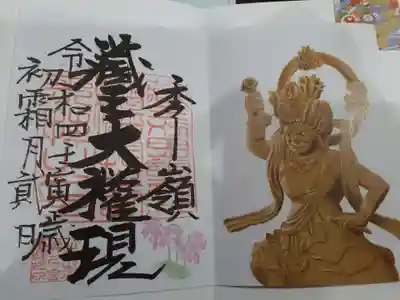 秀嶺
藏王大權現
令和四壬寅歳
初霜月貳